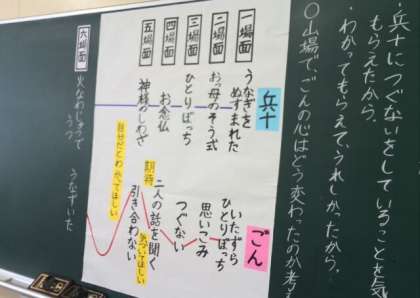 ・兵十につぐないをしていることを気
もらえたから。
・わかってもらえて、うれしかったから。
○山場で、ごんの心はどう変わったのか考え
兵十
ごん
一場面
うなぎを
ぬすまれた
いたずら
ひとりぼっち
二場面
おっ母のそう式
思いこみ
三場面
ひとりぼっち
つぐない
四場面
お念仏
二人の話を聞く
期待
気づいてほしい
五場面
神様のしわざ
引き合わない
自分だとわかってほしい
六場面
火なわじゅうで
うつ
うなずいた